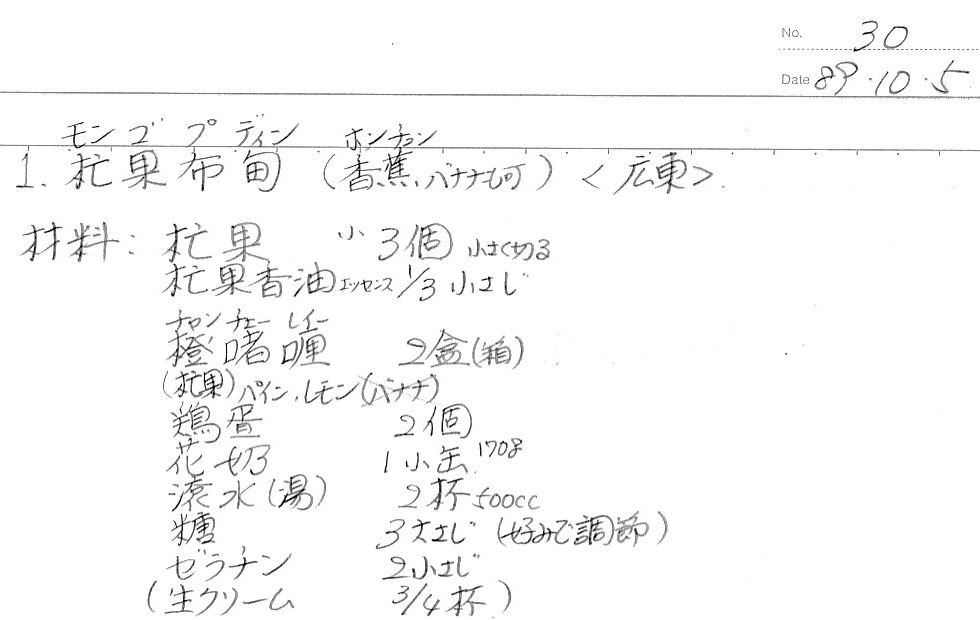 No. 30
Date 89・10・5
モンゴプディン ホンチョン
1. 杧果布甸 (香蕉、バナナも可) <広東>
材料: 杧果 小3個 小さく切る
杧果香油 エッセンス 1/3小さじ
チャンチェーレイー
橙啫喱 2盒(箱)
(杧果)パイン、レモン(バナナ)
鶏蛋 2個
花奶 1小缶 170g
滾水(湯) 2杯 500cc
糖 3大さじ (好みで調節)
ゼラチン 2小さじ
(生クリーム 3/4杯)